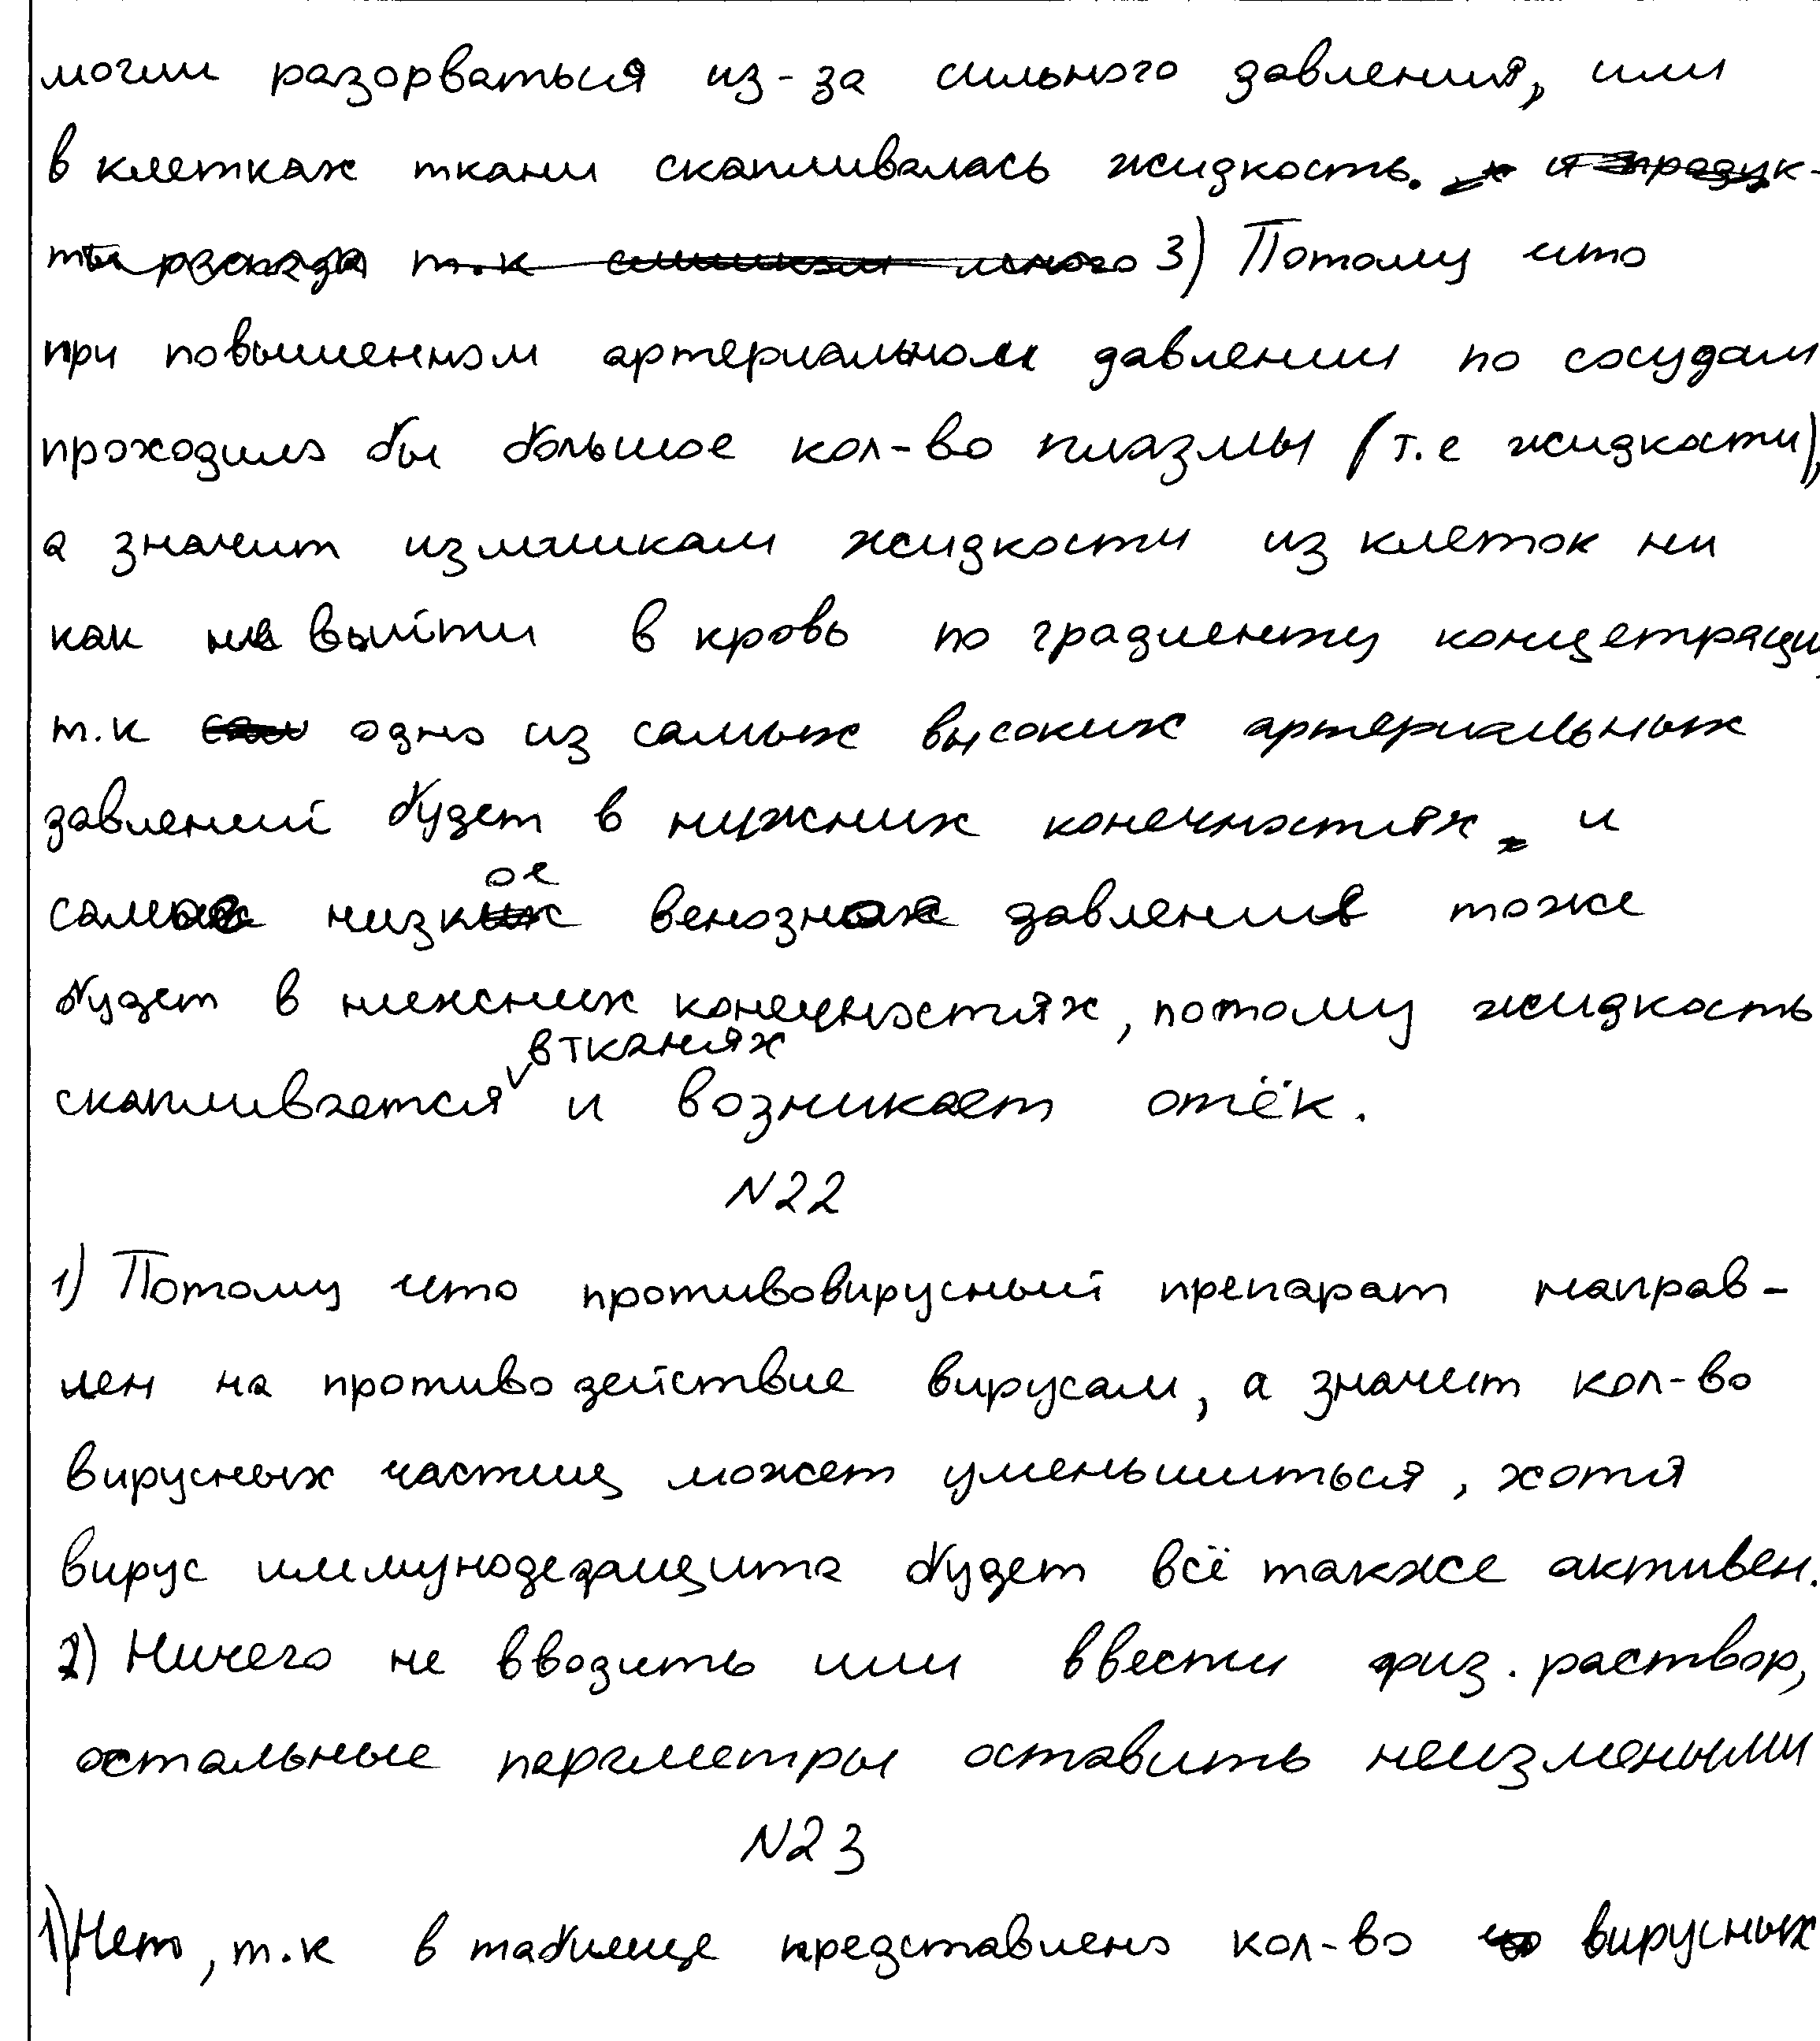 могли разорваться из-за сильного давления, или
в клетках ткани скапливалась жидкость. и продук-
ты распада т.к слишком много 3) Потому что
при повышенном артериальном давлении по сосудам
проходило бы большое кол-во плазмы (т.е жидкости),
а значит излишкам жидкости из клеток ни
как не выйти в кровь по градиенту концетрации,
т.к одно из самых высоких артериальных
давлений будет в нижних конечностях и
самое низкое венозное давление тоже
будет в нижних конечностях, потому жидкость
скапливается в тканях и возникает отёк.
N22
1) Потому что противовирусный препарат направ-
лен на противодействие вирусам, а значит кол-во
вирусных частиц может уменьшиться, хотя
вирус иммунодефицита будет всё также активен.
2) Ничего не вводить или ввести физ. раствор,
остальные параметры оставить неизмеными
N23
1) Нет, т.к в таблице представлено кол-во вирусных